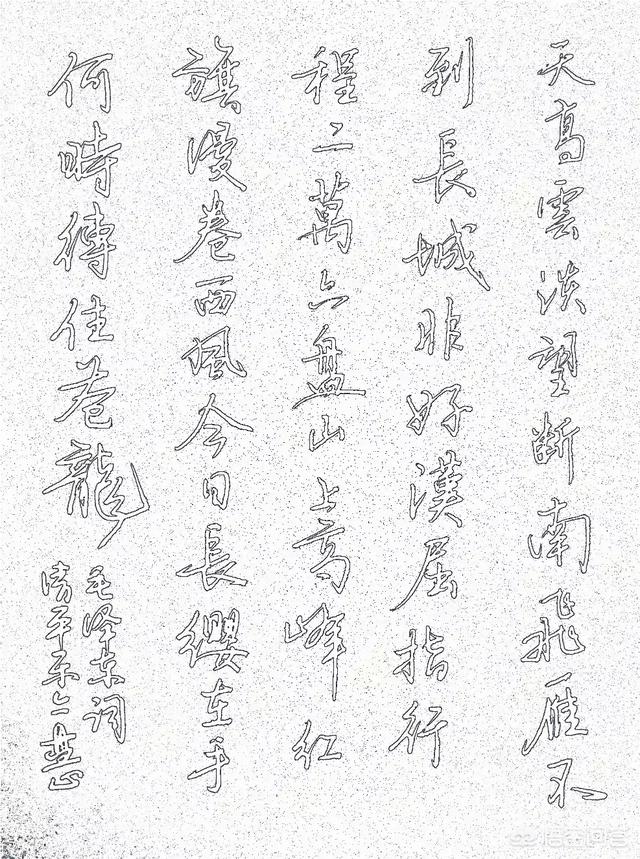 天高雲淡望断南飛雁不
到長城非好漢屈指行
程二萬六盤山上高峰紅
旗漫卷西風今日長纓在手
何時縛住苍龍
毛泽东词
清平乐六
悟空问答